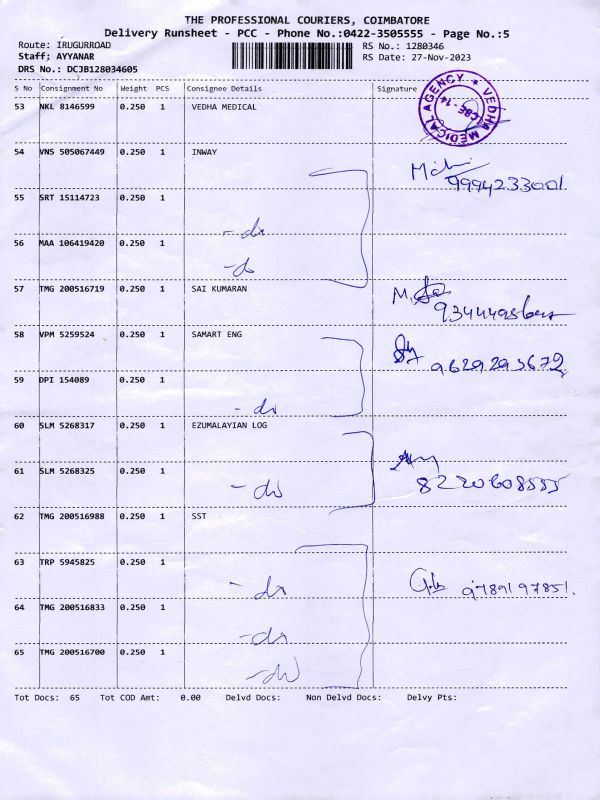 THE PROFESSIONAL COURIERS, COIMBATORE
Delivery Runsheet - PCC - Phone No.:0422-3505555 - Page No.:5
Route: IRUGURROAD RS No.: 1280346
Staff; AYYANAR RS Date: 27-Nov-2023
DRS No.: DCJB128034605
S No Consignment No Weight PCS Consignee Details Signature
53 NKL 8146599 0.250 1 VEDHA MEDICAL
VEDHA MEDICAL AGENCY
CBE - 14
54 VNS 505067449 0.250 1 INWAY
9994233001.
55 SRT 15114723 0.250 1
- do
56 MAA 106419420 0.250 1
- do
57 TMG 200516719 0.250 1 SAI KUMARAN
M.
58 VPM 5259524 0.250 1 SAMART ENG
9629293672
59 DPI 154089 0.250 1
- do
60 SLM 5268317 0.250 1 EZUMALAYIAN LOG
61 SLM 5268325 0.250 1
- do
8220608555
62 TMG 200516988 0.250 1 SST
63 TRP 5945825 0.250 1
- do
9789197851.
64 TMG 200516833 0.250 1
- do
65 TMG 200516700 0.250 1
- do
Tot Docs: 65 Tot COD Amt: 0.00 Delvd Docs: Non Delvd Docs: Delvy Pts: